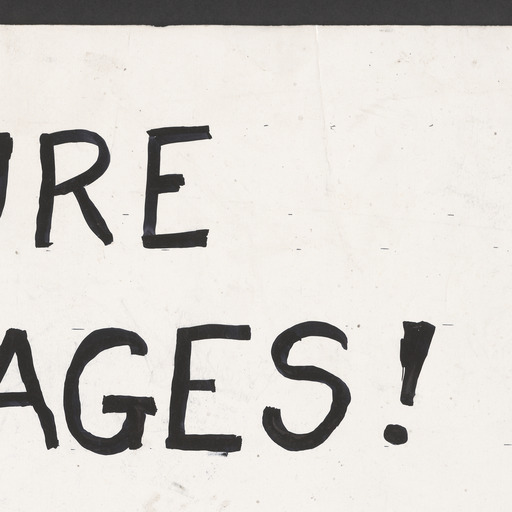 URE
AGES!